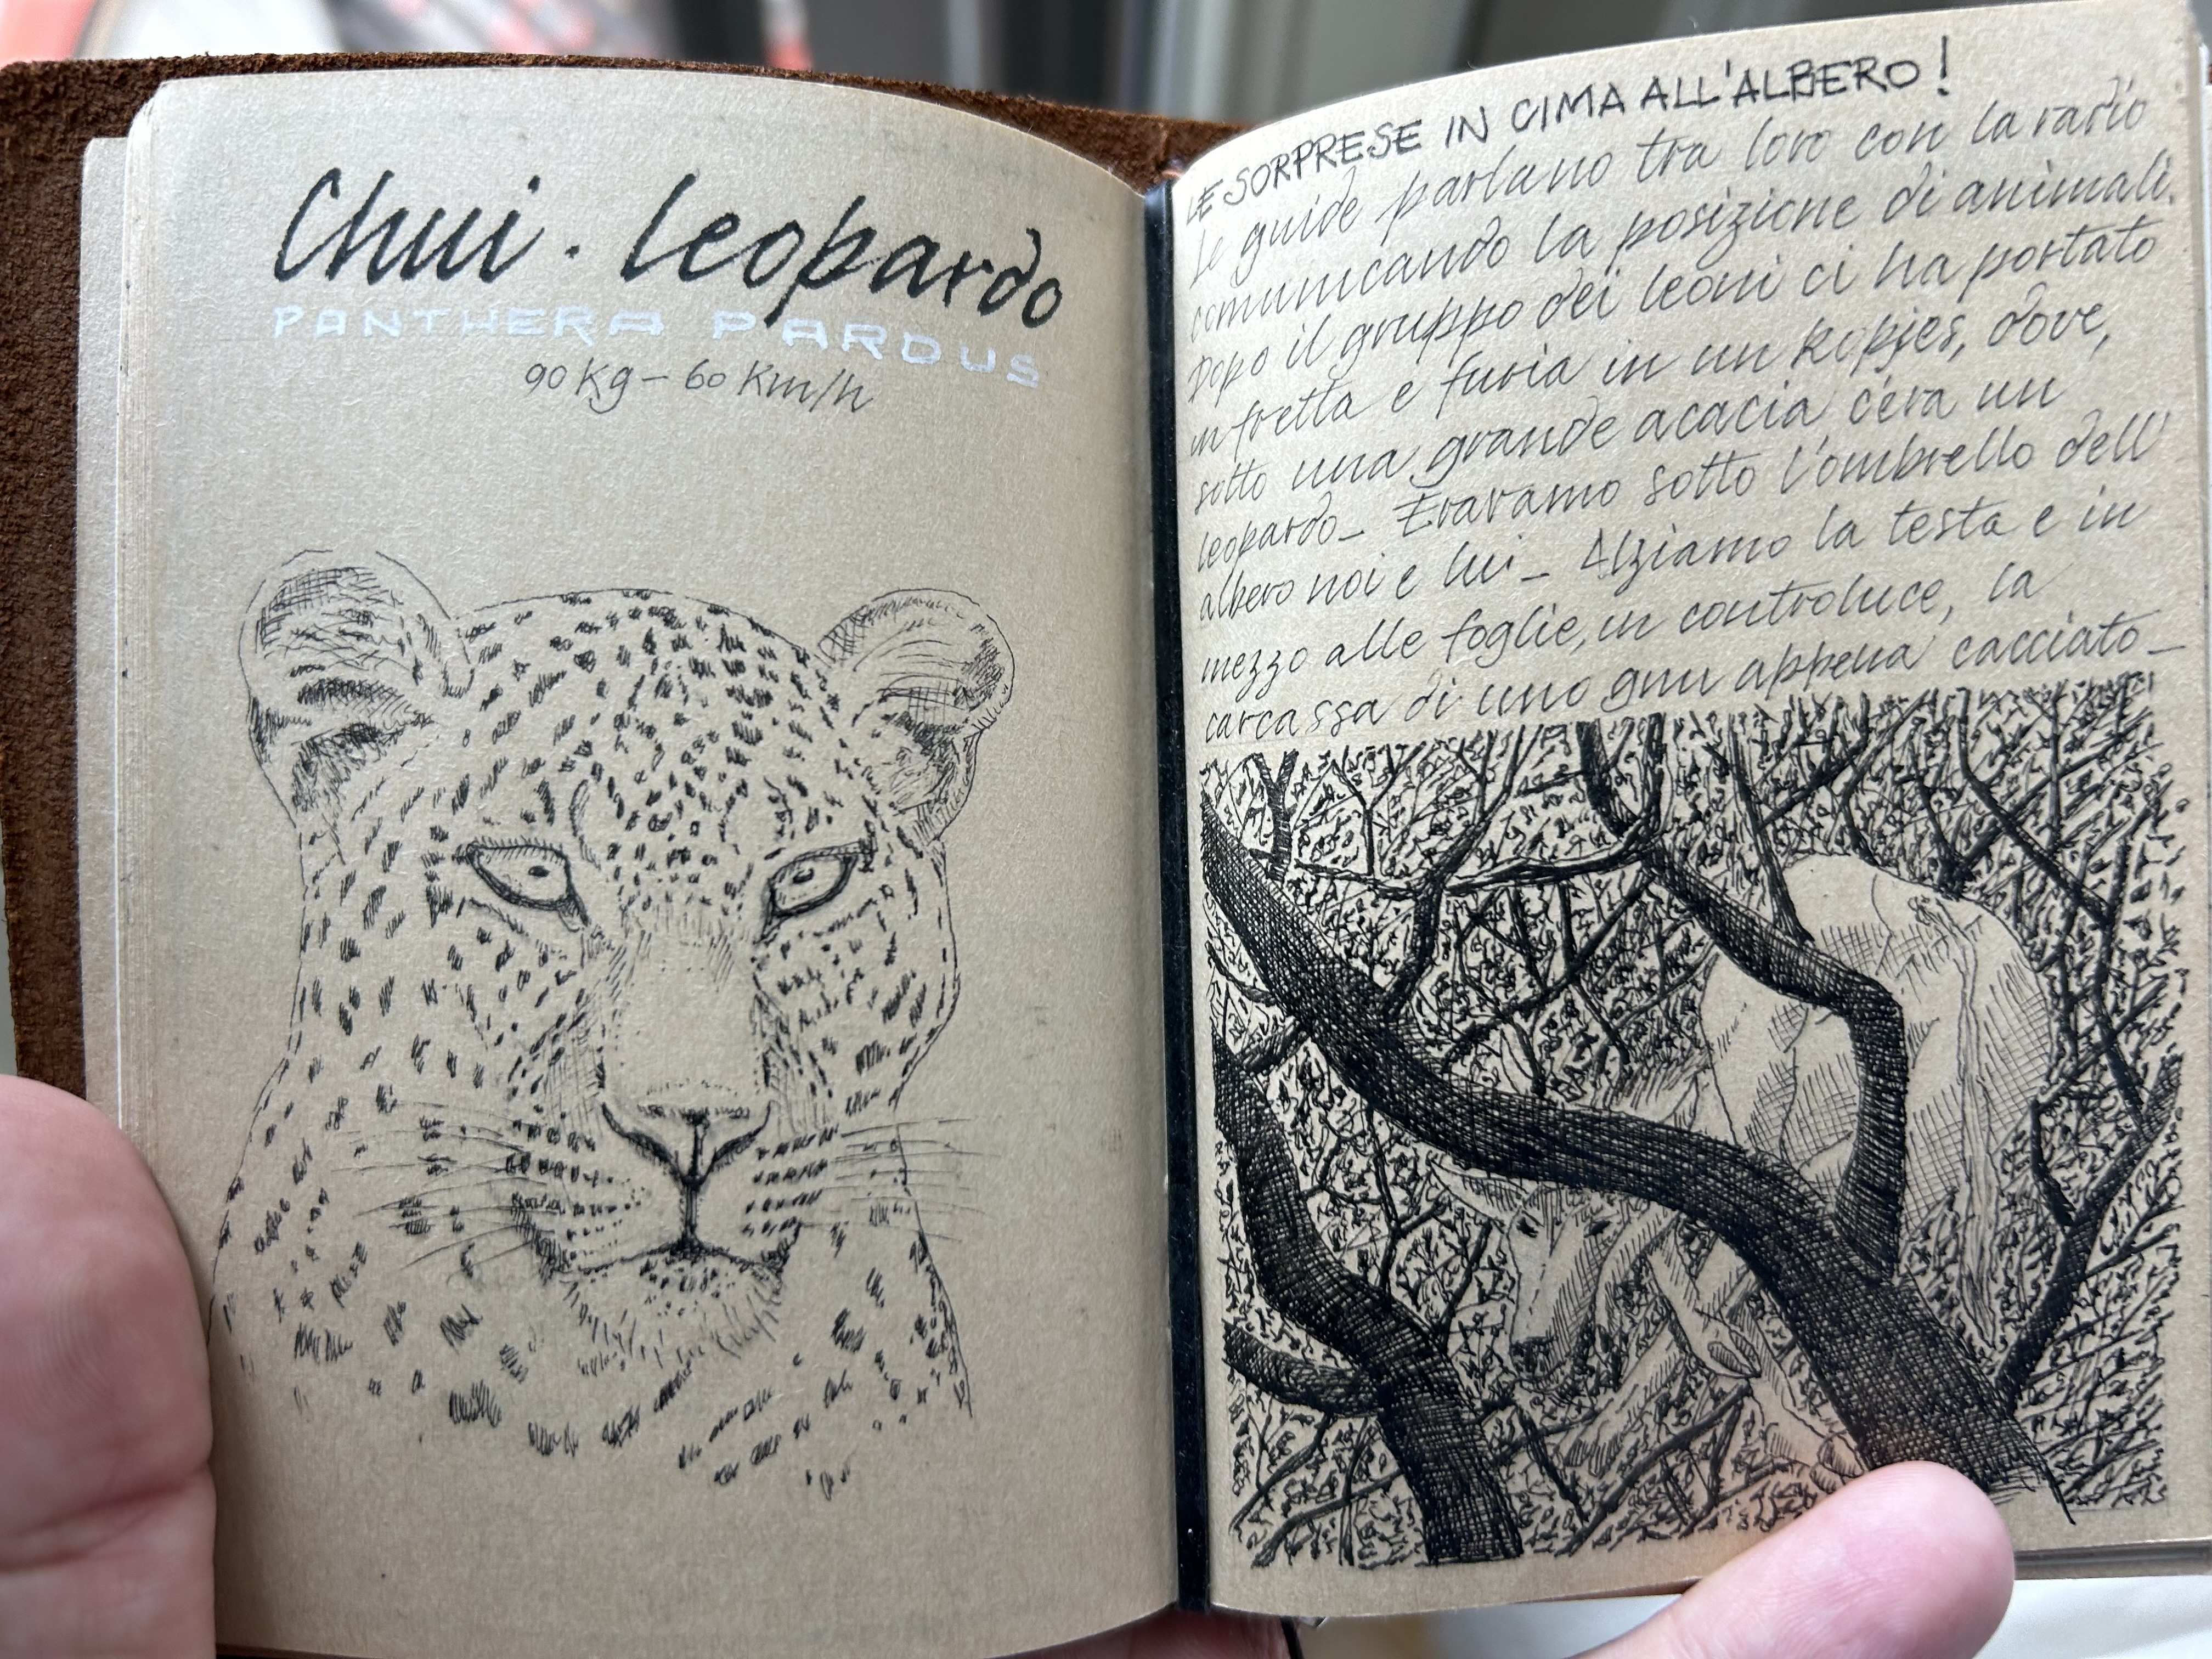 Chui · leopardo
PANTHERA PARDUS
90 Kg – 60 Km/h
LE SORPRESE IN CIMA ALL'ALBERO!
Le guide parlano tra loro con la radio
comunicando la posizione di animali.
Dopo il gruppo dei leoni ci ha portato
in fretta e furia in un Kopjes, dove,
sotto una grande acacia c'era un
leopardo_ Eravamo sotto l'ombrello dell'
albero noi e lui_ Alziamo la testa e in
mezzo alle foglie, in controluce, la
carcassa di uno gnu appena cacciato_